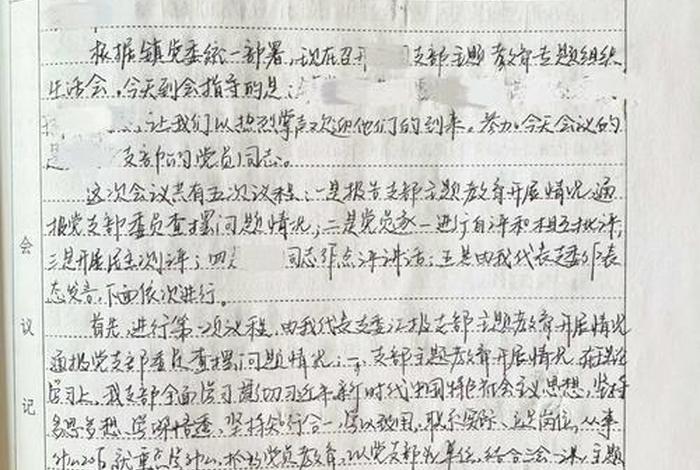 根据镇党委统一部署,现在召开 支部主题教育专题组织
生活会。今天到会指导的是:
让我们以热烈掌声欢迎他们的到来。参加今天会议的
是 支部的党员同志。
这次会议共有五项议程:一是报告支部主题教育开展情况,通
报党支部委员查摆问题情况;二是党员逐一进行自评和相互批评;
三是开展民主测评;四是 同志作点评讲话;五是由我代表支委作表
态发言,下面依次进行。
会
首先,进行第一项议程,由我代表支委汇报支部主题教育开展情况
议
通报党支部委员查摆问题情况:一、支部主题教育开展情况。在理论
学习上,我支部全面学习 习近平新时代中国特色社会主义思想,坚持
多思多想、学深悟透,坚持知行合一、学以致用,联系实际、立足岗位,从
记
就重点 党员教育,以党支部为单位,结合三会一课、主题